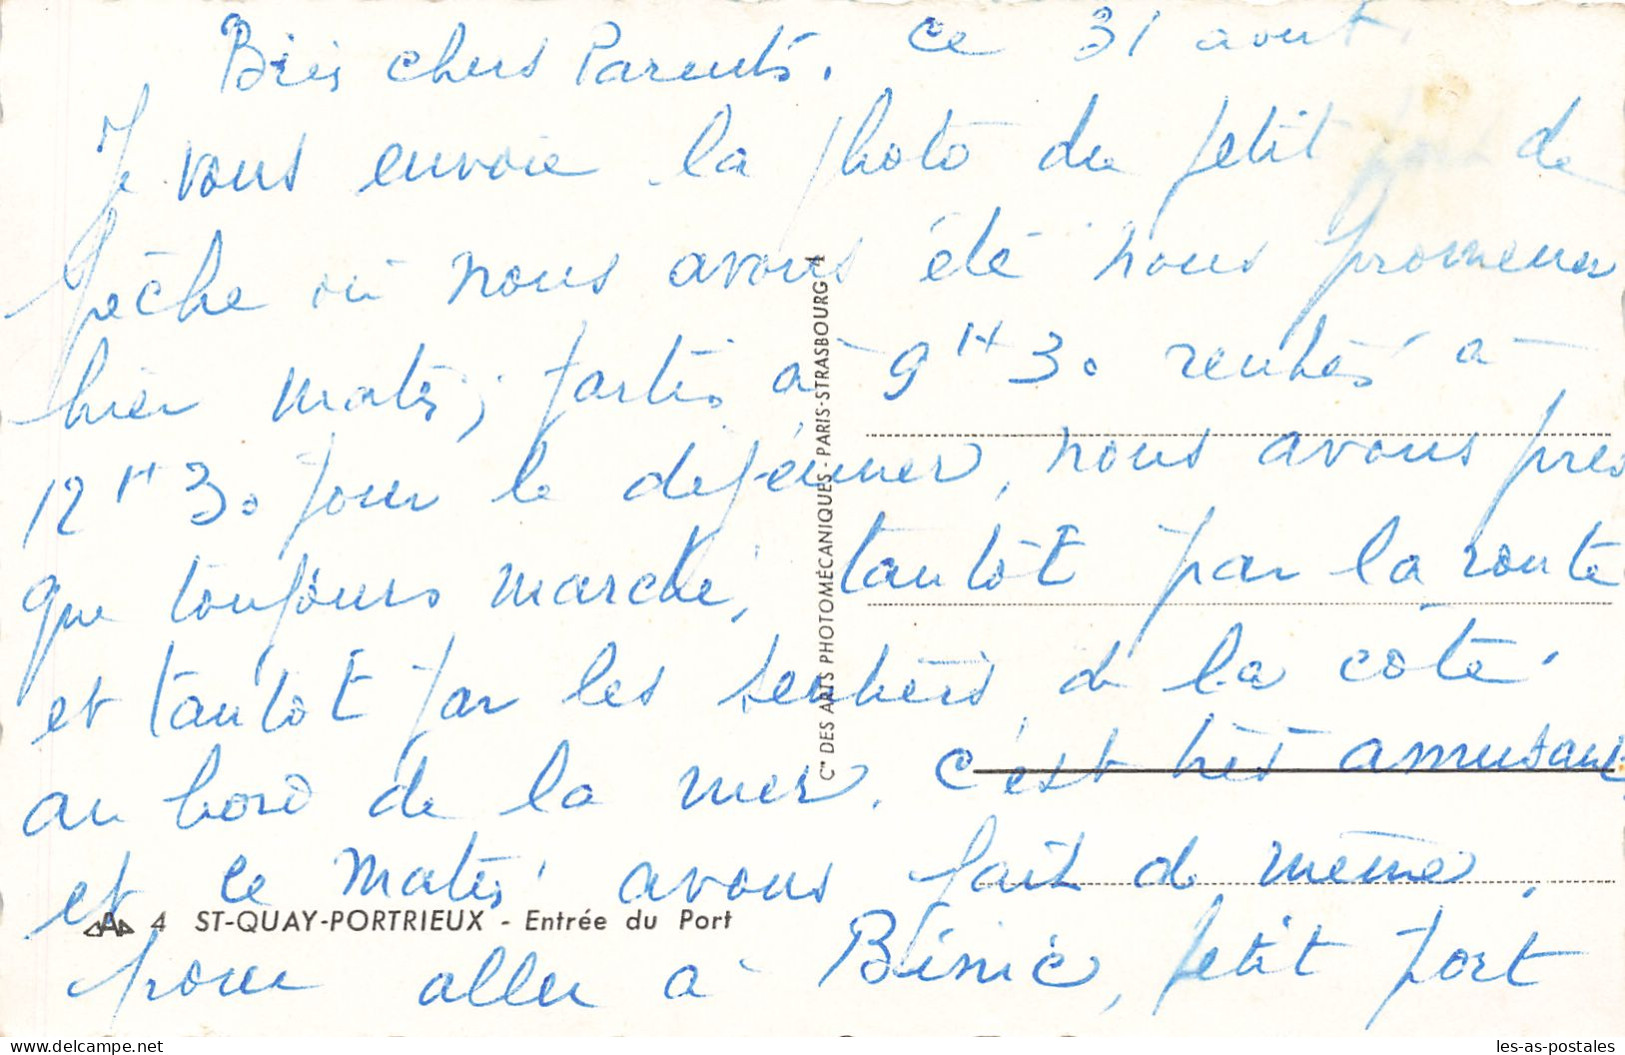 Bien chers Parents. ce 31 aout.
Je vous envoie la photo du petit port de
pêche où nous avons été nous promener
hier matin, partis à 9 H 30 rentrés à
12 H 30 pour le déjeuner, nous avons pres
que toujours marché, tantôt par la route
et tantôt par les sentiers de la côte
au bord de la mer. c'est très amusant
et ce matin avons fait de même,
pour aller à Binic, petit port
4 ST-QUAY-PORTRIEUX - Entrée du Port
Cie DES ARTS PHOTOMÉCANIQUES - PARIS-STRASBOURG
delcampe.net
les-as-postales